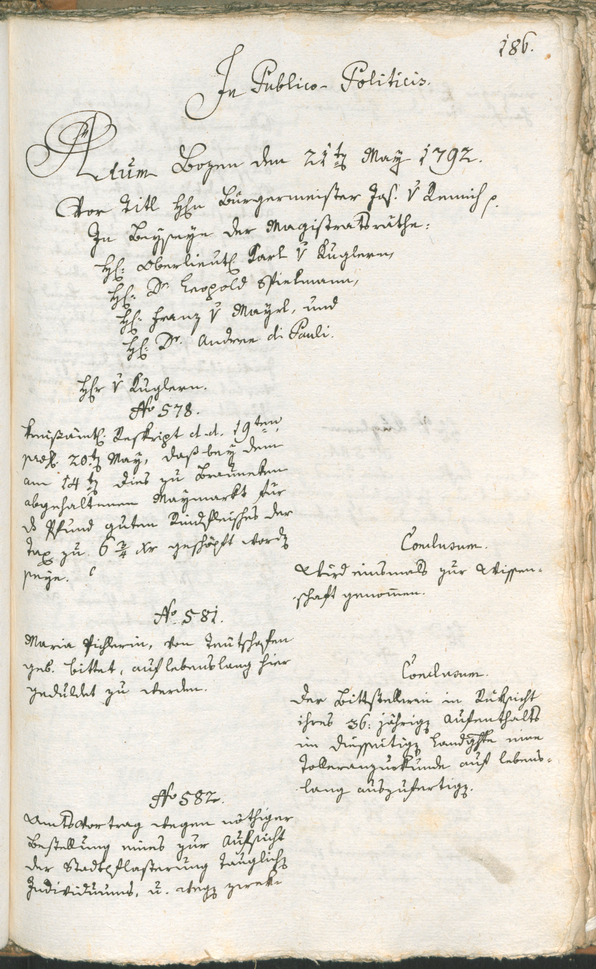 186.
In Publico-Politicis.
Actum Bozen den 21tn May 1792.
Vor Titl Hhn Bürgermeister Jos. v Remich p.
In Beyseyn der Magistratsräthe:
H: Oberlieut: Karl v Kuglern,
H: Dr Leopold Spielmann,
H: Franz v Mayrl, und
H: Dr. Andree di Pauli.
Hhr v Kuglern.
No 578.
Kreisämtl Reskript d. d. 19ten
pres. 20tn May, daß bey dem
am 14tn dies zu Brauneken
abgehaltenen Maymarkt für
ds Pfund guten Rindfleisches der
Tax zu 6 3/4 xr geschöpft wordn
seye.
Conclusum.
Wird einsmals zur Wissen-
schaft genommen.
No. 581.
Maria Pichlerin, von Teutschofen
geb. bittet, auf lebenslang hier
geduldet zu werden.
Conclusum.
Der Bittstellerin in Rüksicht
ihres 36. jährign Aufenthalts
im diesseitign Landghte eine
Tolleranzurkunde auf lebens-
lang auszufertign.
No 582.
Amtsvortrag wegen nöthiger
Bestellung eines zur Aufsicht
der Stadtpflasterung tauglichn
Individuums, u. wegn